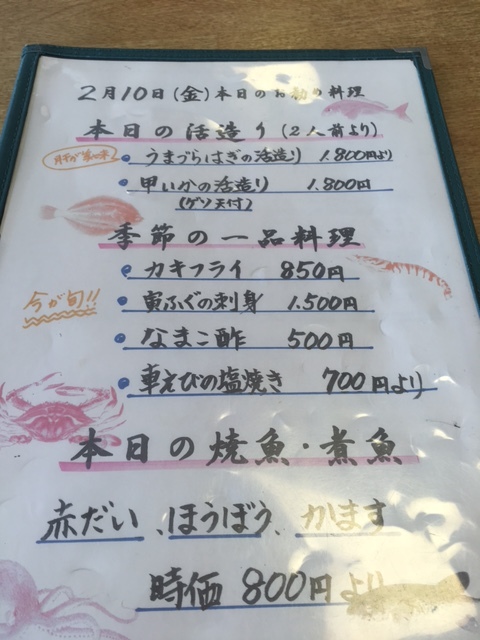 2月10日(金)本日のお勧め料理
本日の活造り(2人前より)
肝が美味
うまづらはぎの活造り 1.800円より
甲いかの活造り 1.800円
(ゲソ天付)
季節の一品料理
カキフライ 850円
今が旬!!
寅ふぐの刺身 1.500円
なまこ酢 500円
車えびの塩焼き 700円より
本日の焼魚・煮魚
赤だい、ほうぼう、かます
時価 800円より